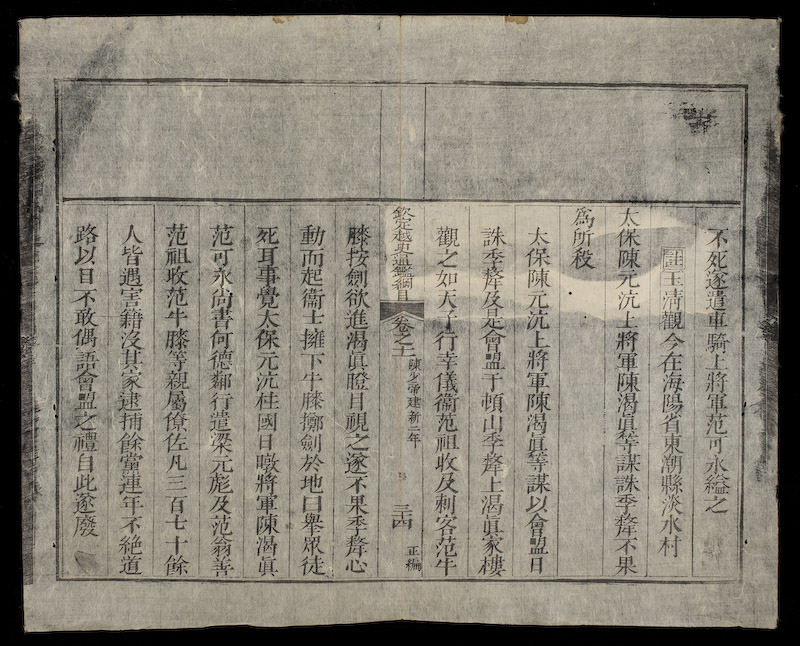 不死遂遣車騎上將軍范可永縊之
註玉清觀今在海陽省東潮縣淡水村
太保陳元沆上將軍陳渴眞等謀誅季犛不果
爲所殺
太保陳元沆上將軍陳渴眞等謀以會盟日
誅季犛及是會盟于頓山季犛上渴眞家樓
觀之如天子行幸儀衞范祖收及刺客范牛
欽定越史通鑑綱目 卷之十一 陳少帝建新二年 三四 正編
膝按劍欲進渴眞瞪目視之遂不果季犛心
動而起衞士擁下牛膝擲劍於地曰舉眾徒
死耳事覺太保元沆柱國日暾將軍陳渴眞
范可永尚書何德鄰行遣梁元彪及范翁善
范祖收范牛膝等親屬僚佐凡三百七十餘
人皆遇害籍沒其家逮捕餘黨連年不絶道
路以目不敢偶語會盟之禮自此遂廢